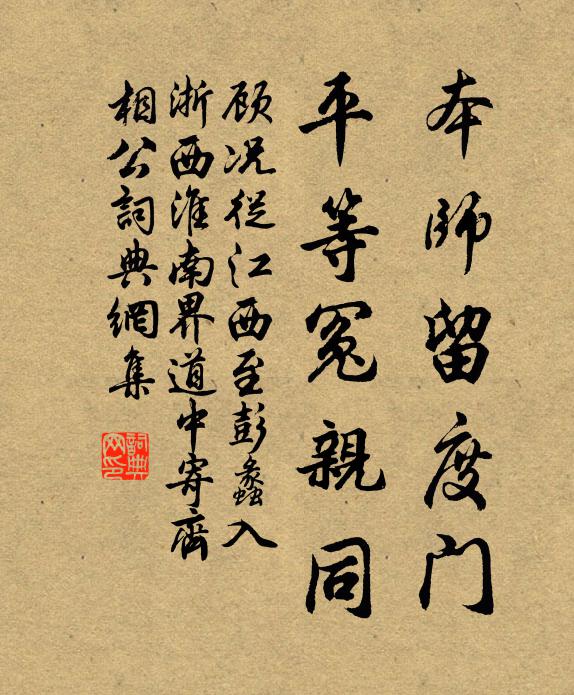 本師留度门
平等冤親同
顾况從江西至彭蠡入
浙西淮南界道中寄齊
相公詞典網集
詞典网印